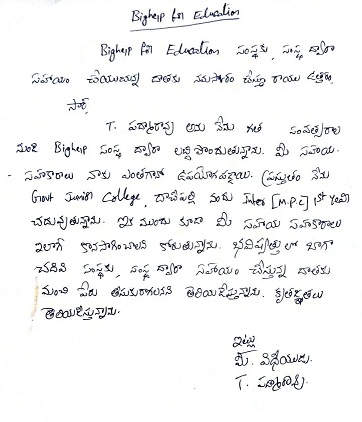 Bighelp for Education
Bighelp for Education సంస్థకు, సంస్థ ద్వారా
సహాయం చేయుచున్న దాతకు నమస్కారం చేస్తూ రాయు ఉత్తరం.
సార్,
T. పద్మారావు అను నేను గత సంవత్సరాల
నుండి Bighelp సంస్థ ద్వారా లబ్ది పొందుతున్నాను. మీ సహాయ
సహకారాలు నాకు ఎంతగానో ఉపయోగపడ్డాయి. ప్రస్తుతం నేను
Govt Junior College, దాచేపల్లి నందు Inter [M.P.C] 1st year
చదువుతున్నాను. ఇక ముందు కూడా మీ సహాయ సహకారాలు
ఇలాగే కొనసాగించాలని కోరుతున్నాను. భవిష్యత్తు లో బాగా
చదివి సంస్థకు, సంస్థ ద్వారా సహాయం చేస్తున్న దాతకు
మంచి పేరు తీసుకురాగలనని తెలియజేస్తున్నాను. కృతజ్ఞతలు
తెలియజేస్తున్నాను.
ఇట్లు
మీ విధేయుడు.
T. పద్మారావు.